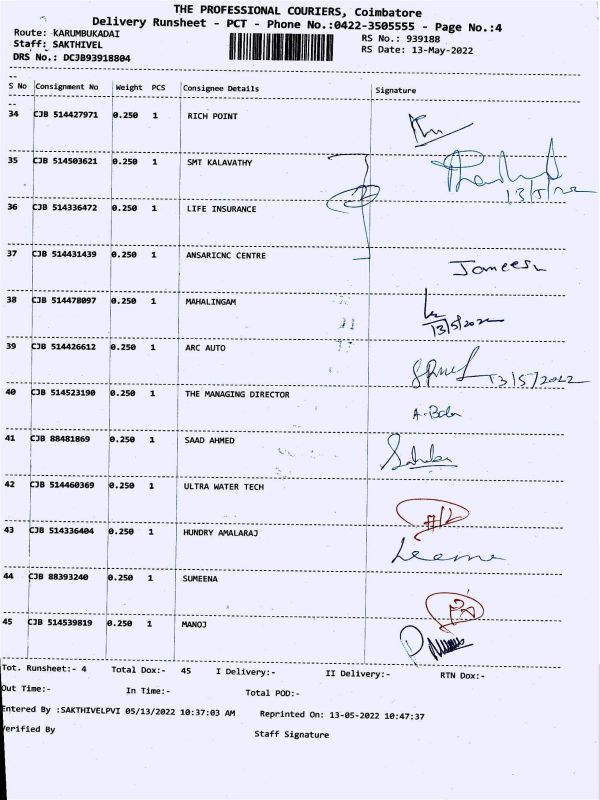 THE PROFESSIONAL COURIERS, Coimbatore
Delivery Runsheet - PCT - Phone No.:0422-3505555 - Page No.:4
Route: KARUMBUKADAI
RS No.: 939188
Staff: SAKTHIVEL
RS Date: 13-May-2022
DRS No.: DCJB93918804
S No Consignment No Weight PCS Consignee Details Signature
34 CJB 514427971 0.250 1 RICH POINT
35 CJB 514503621 0.250 1 SMT KALAVATHY
13/5/22
36 CJB 514336472 0.250 1 LIFE INSURANCE
37 CJB 514431439 0.250 1 ANSARICNC CENTRE
Jameesh
38 CJB 514478097 0.250 1 MAHALINGAM
13/5/2022
39 CJB 514426612 0.250 1 ARC AUTO
13/5/2022
40 CJB 514523190 0.250 1 THE MANAGING DIRECTOR
A. Babu
41 CJB 88481869 0.250 1 SAAD AHMED
42 CJB 514460369 0.250 1 ULTRA WATER TECH
43 CJB 514336404 0.250 1 HUNDRY AMALARAJ
44 CJB 88393240 0.250 1 SUMEENA
45 CJB 514539819 0.250 1 MANOJ
Tot. Runsheet:- 4 Total Dox:- 45 I Delivery:- II Delivery:- RTN Dox:-
Out Time:- In Time:- Total POD:-
Entered By :SAKTHIVELPVI 05/13/2022 10:37:03 AM Reprinted On: 13-05-2022 10:47:37
Verified By Staff Signature